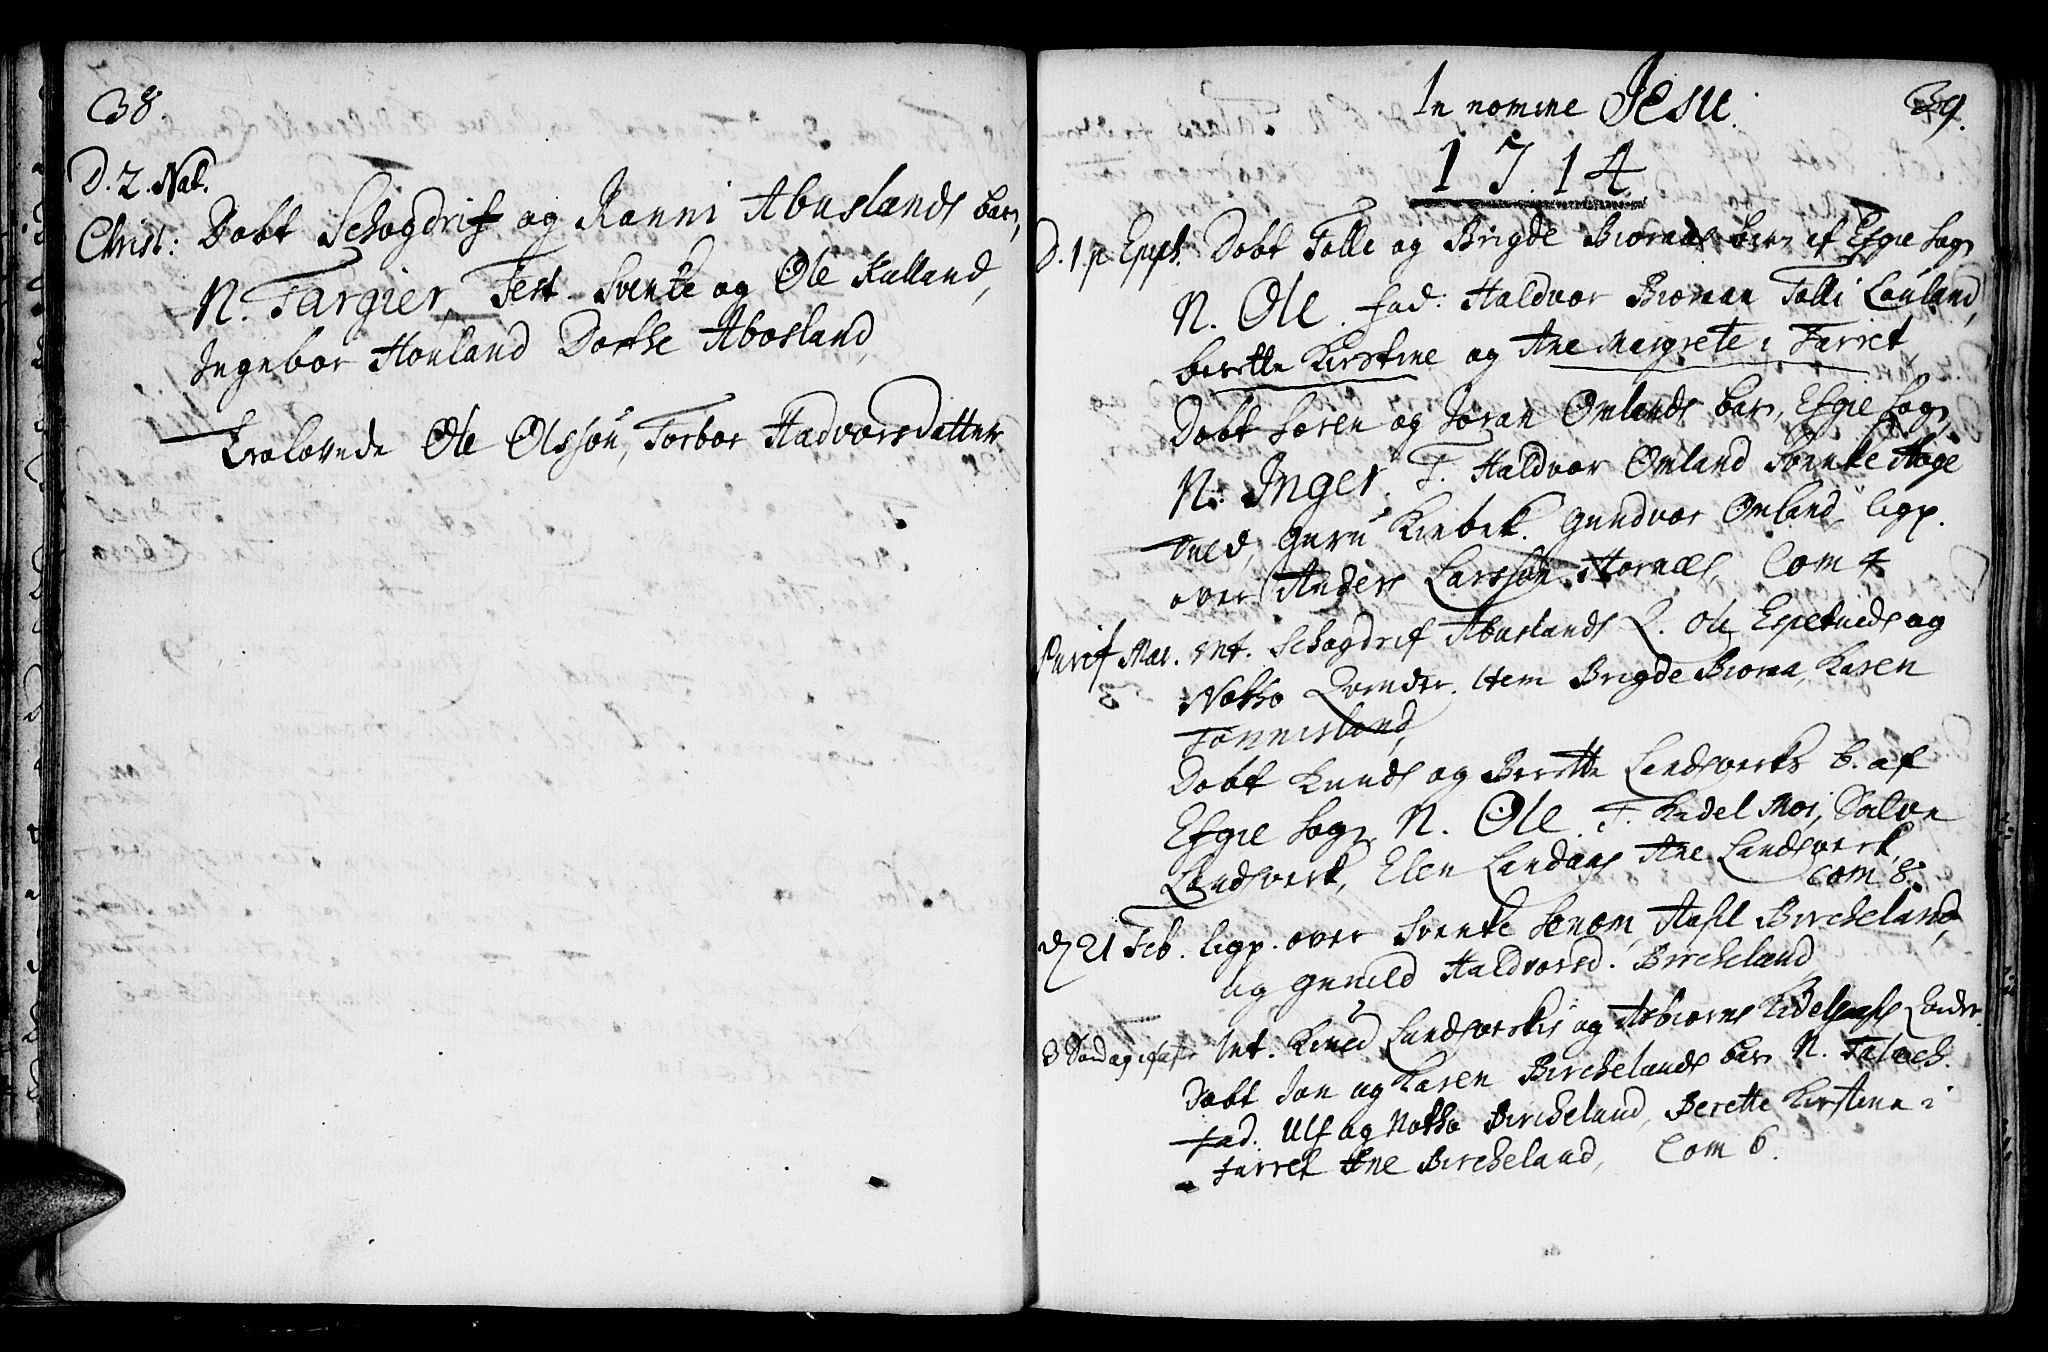 38.
D. 2. Nat.
Christ: Døbt Schogdrif og Ranni Abuslands barn,
N. Targier, Test. Svenke og Ole Kalland,
Ingebor Honland Dorthe Abosland,
Trolovede Ole Olssøn, Torbor Hadvorsdatter
39.
In nomine Jesu.
1714
D. 1. p. Epph. Døbt Tolle og Brigde Biornæs barn af Efgie Sogn
N. Ole. fad: Haldvor Bioraan Tolli Lonland,
berette Kirstine og Ane Margrete i Farret,
Døbt Soren og Joran Omlands barn, Efgie Sogn,
N. Inger. T. Haldvor Omland Svenke Aage
Tued, Guru Kirbek. Gundvor Omland, ligp.
over Anders Larssøn Hornæs, Com 4
Purif Mar. Int. Schogdrif Abuslands Q. Ole Epetueds og
Notho Qvinder. Item Brigde Bioraa, Karen
Tonnisland,
Døbt Knuds og Berette Landsverks b. af
Efgie Sogn, N. Ole. T. Kidel Moi, Salve
Landsverk, Elen Landaas Ane Landsverk,
Com 8.
D 21 Feb. ligp. over Svenke Senom, Aasil Bircheland,
og Gunild Haldvorsd. Bircheland
3 Søndag i faste Int. Knud Landsverskis og Asbiorns Kidelsaas Qvinder.
Døbt Jon og Karen Birchelands barn N. Talach.
fad. Ulf og Notho Bircheland, Berette Kirstina i
Farret Ane Bircheland, Com 6.